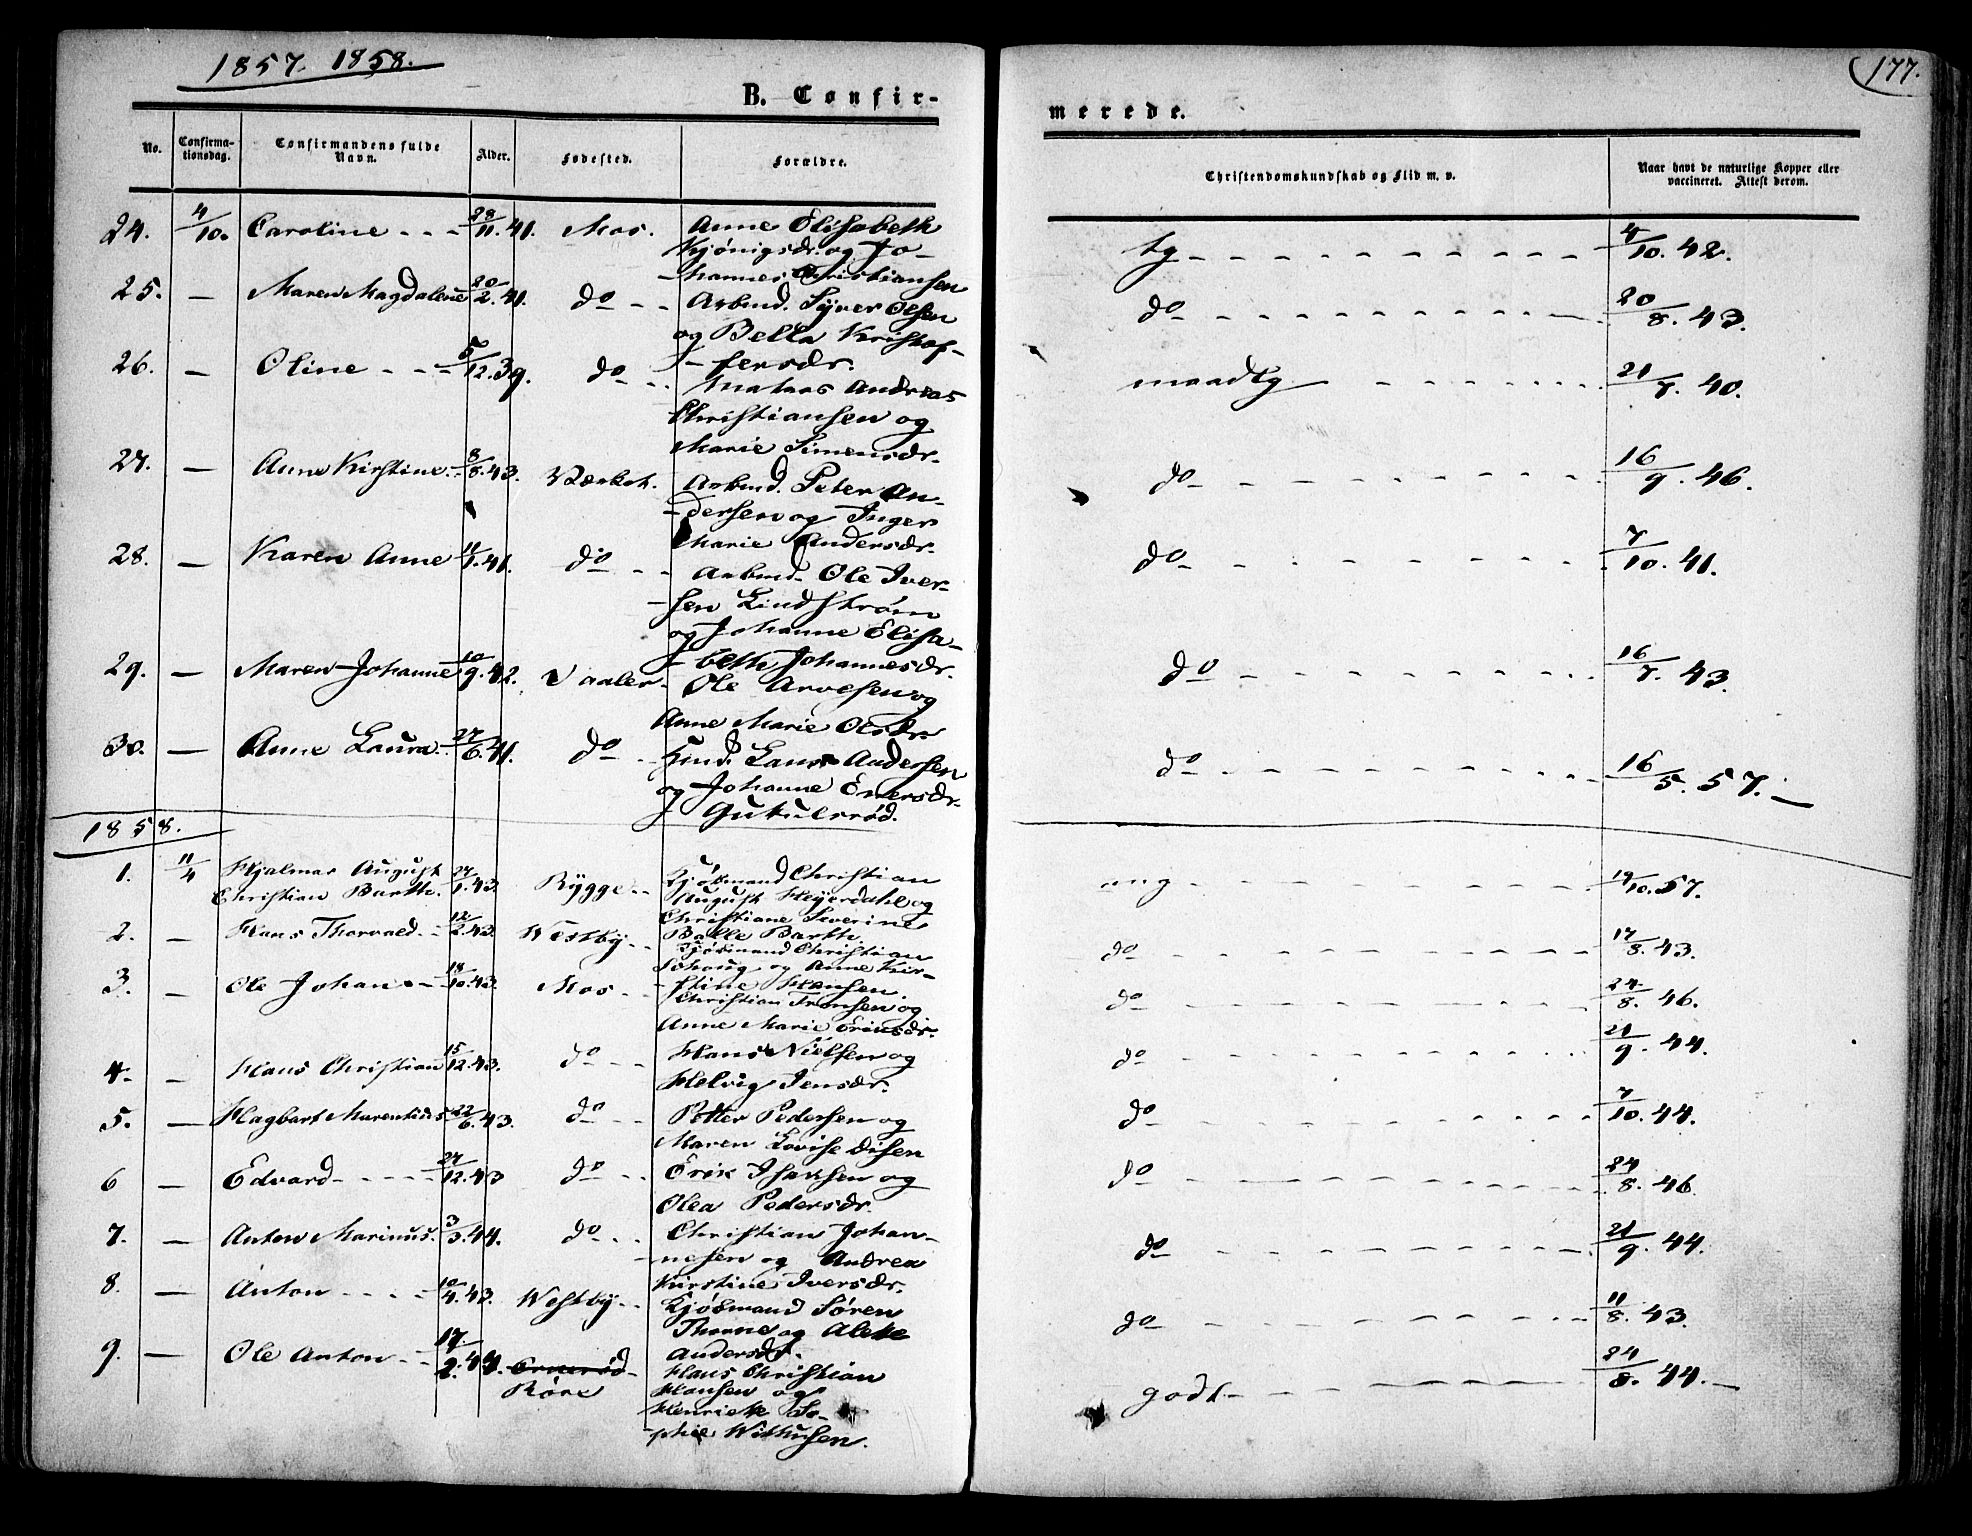 1857. 1858.
177.
B. Confir-
merede.
No.
Confirma-
tionsdag.
Confirmandens fulde
Navn.
Alder.
Fødested.
Forældre.
Christendomskundskab og Flid m. v.
Naar havt de naturlige Kopper eller
vaccineret. Attest derom.
24. 4/10. Caroline - - - 28/11. 41. Mos. Anne Elisabeth tg - - - 4/10. 42.
Kjönigsdr. og Jo-
-hannes Christiansen
25. — Maren Magdalene 20/2. 41. do - - Arbmd. Syver Olsen do - - - 20/8. 43.
og Bella Kristof-
-fersdr.
26. — Oline - - - 5/12. 39. do - - Matros Andreas maadlg - - - 21/7. 40.
Christiansen og
Marie Simensdr.
27. — Anne Kirstine. - 8/8. 43. Værket. Arbmd. Peter An- do - - - 16/9. 46.
-dersen og Inger
Marie Andersdr.
28. — Karen Anne 11/1. 41. do - - Arbmd. Ole Iver- do - - - 7/10. 41.
-sen Lindström
og Johanne Elisa-
-beth Johannesdr.
29. — Maren Johanne 10/9. 42. Vaaler - Ole Arvesen og do - - - 16/7. 43.
Anne Marie Olsdr.
30. — Anne Laura. - 27/6. 41. do - Gmd. Laurs Andersen do - - - 16/5. 57. —
og Johanne Enersdr.
1858.
1. 11/4 Hjalmar August 27/1. 43. Rygge - - Kjøbmand Christian mg - - - 19/10. 57.
Christian Barth. August Heyerdahl og
Christiane Severine
Balle Barth.
2. — Hans Thorvald - 12/2. 43. Westby - - Kjøbmand Christian do - - - 17/8. 43.
Sohoug og Anne Kir-
-stine Hansen
3. — Ole Johan - - 18/10. 43. Mos - - Christian Fronsen og do - - - 24/8. 46.
Anne Marie Erik sdr.
4. — Hans Christian 15/12. 43. do - - Hans Nielsen og do - - - 21/9. 44.
Helvig Jensdr.
5. — Hagbart Marentius 22/6. 43. do - - Petter Pedersen og do - - - 7/10. 44.
Maren Lovise
6 — Edvard - - - 27/12. 43 do - - Erik Isaksen og do - - - 24/8. 46.
Olea Pedersdr.
7. — Anton Marinus. 3/3. 44. do - - Christian Johan- do - - - 21/9. 44.
-nesen og Andrea
Kirstine Iversdr.
8. — Anton - - - 10/4. 43. Westby - - Kjøbmand Sören do - - - 11/8. 43.
Thorne og Alette
Andersdr.
9. — Ole Anton - - 17/2. 44. Röre Hans Christian godt. - - - 24/8. 44. —
Hansen og
Henriette So-
-phie Withusen.